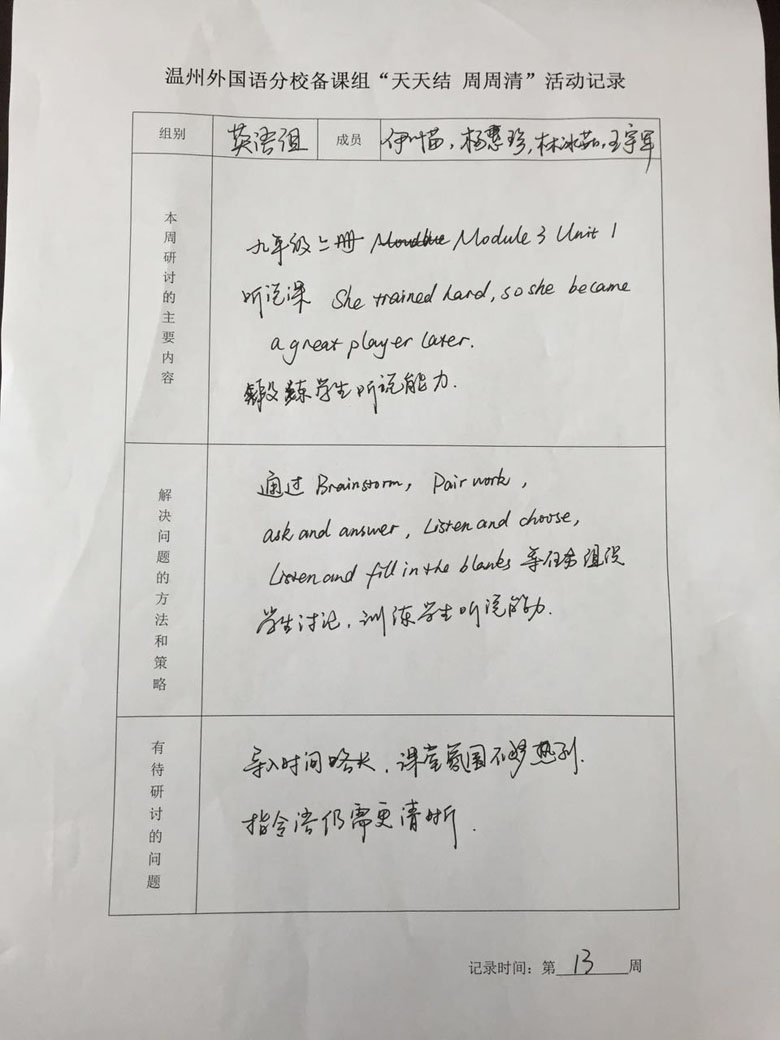 温州外国语分校备课组“天天结 周周清”活动记录
组别 英语组 成员 伊叶苗，杨慧珍，林冰茹，王宇军
本周研讨的主要内容
九年级二册 Module 3 Unit 1
听说课 She trained hard, so she became
a great player later.
锻炼学生听说能力.
解决问题的方法和策略
通过 Brainstorm, Pair work,
ask and answer, Listen and choose,
Listen and fill in the blanks 等任务组织
学生讨论，训练学生听说能力.
有待研讨的问题
导入时间略长，课堂氛围不够热烈.
指令语仍需更清晰.
记录时间：第 13 周